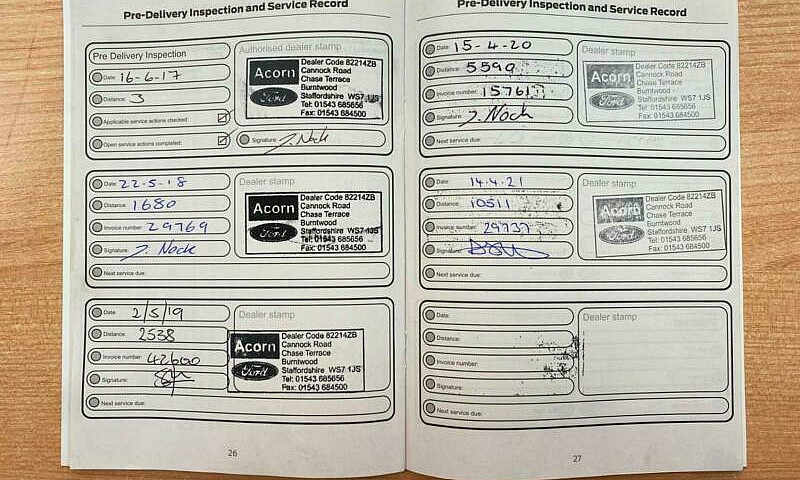 Pre-Delivery Inspection and Service Record
Pre Delivery Inspection
Date: 16-6-17
Distance: 3
Applicable service actions checked:
Open service actions completed:
Authorised dealer stamp
Acorn
Ford
Dealer Code 82214ZB
Cannock Road
Chase Terrace
Burntwood
Staffordshire WS7 1JS
Tel: 01543 685656
Fax: 01543 684500
Signature: J. Nock
Date: 22-5-18
Distance: 1680
Invoice number: 29769
Signature: J. Nock
Next service due:
Dealer stamp
Acorn
Ford
Dealer Code 82214ZB
Cannock Road
Chase Terrace
Burntwood
Staffordshire WS7 1JS
Tel: 01543 685656
Fax: 01543 684500
Date: 2/5/19
Distance: 2538
Invoice number: 42600
Signature:
Next service due:
Dealer stamp
Acorn
Ford
Dealer Code 82214ZB
Cannock Road
Chase Terrace
Burntwood
Staffordshire WS7 1JS
Tel: 01543 685656
Fax: 01543 684500
26
Pre-Delivery Inspection and Service Record
Date: 15-4-20
Distance: 5599
Invoice number: 15761
Signature: J. Nock
Next service due:
Dealer stamp
Acorn
Ford
Dealer Code 82214ZB
Cannock Road
Chase Terrace
Burntwood
Staffordshire WS7 1JS
Tel: 01543 685656
Fax: 01543 684500
Date: 14.4.21
Distance: 10511
Invoice number: 29737
Signature:
Next service due:
Dealer stamp
Acorn
Ford
Dealer Code 82214ZB
Cannock Road
Chase Terrace
Burntwood
Staffordshire WS7 1JS
Tel: 01543 685656
Fax: 01543 684500
Date:
Distance:
Invoice number:
Signature:
Next service due:
Dealer stamp
27